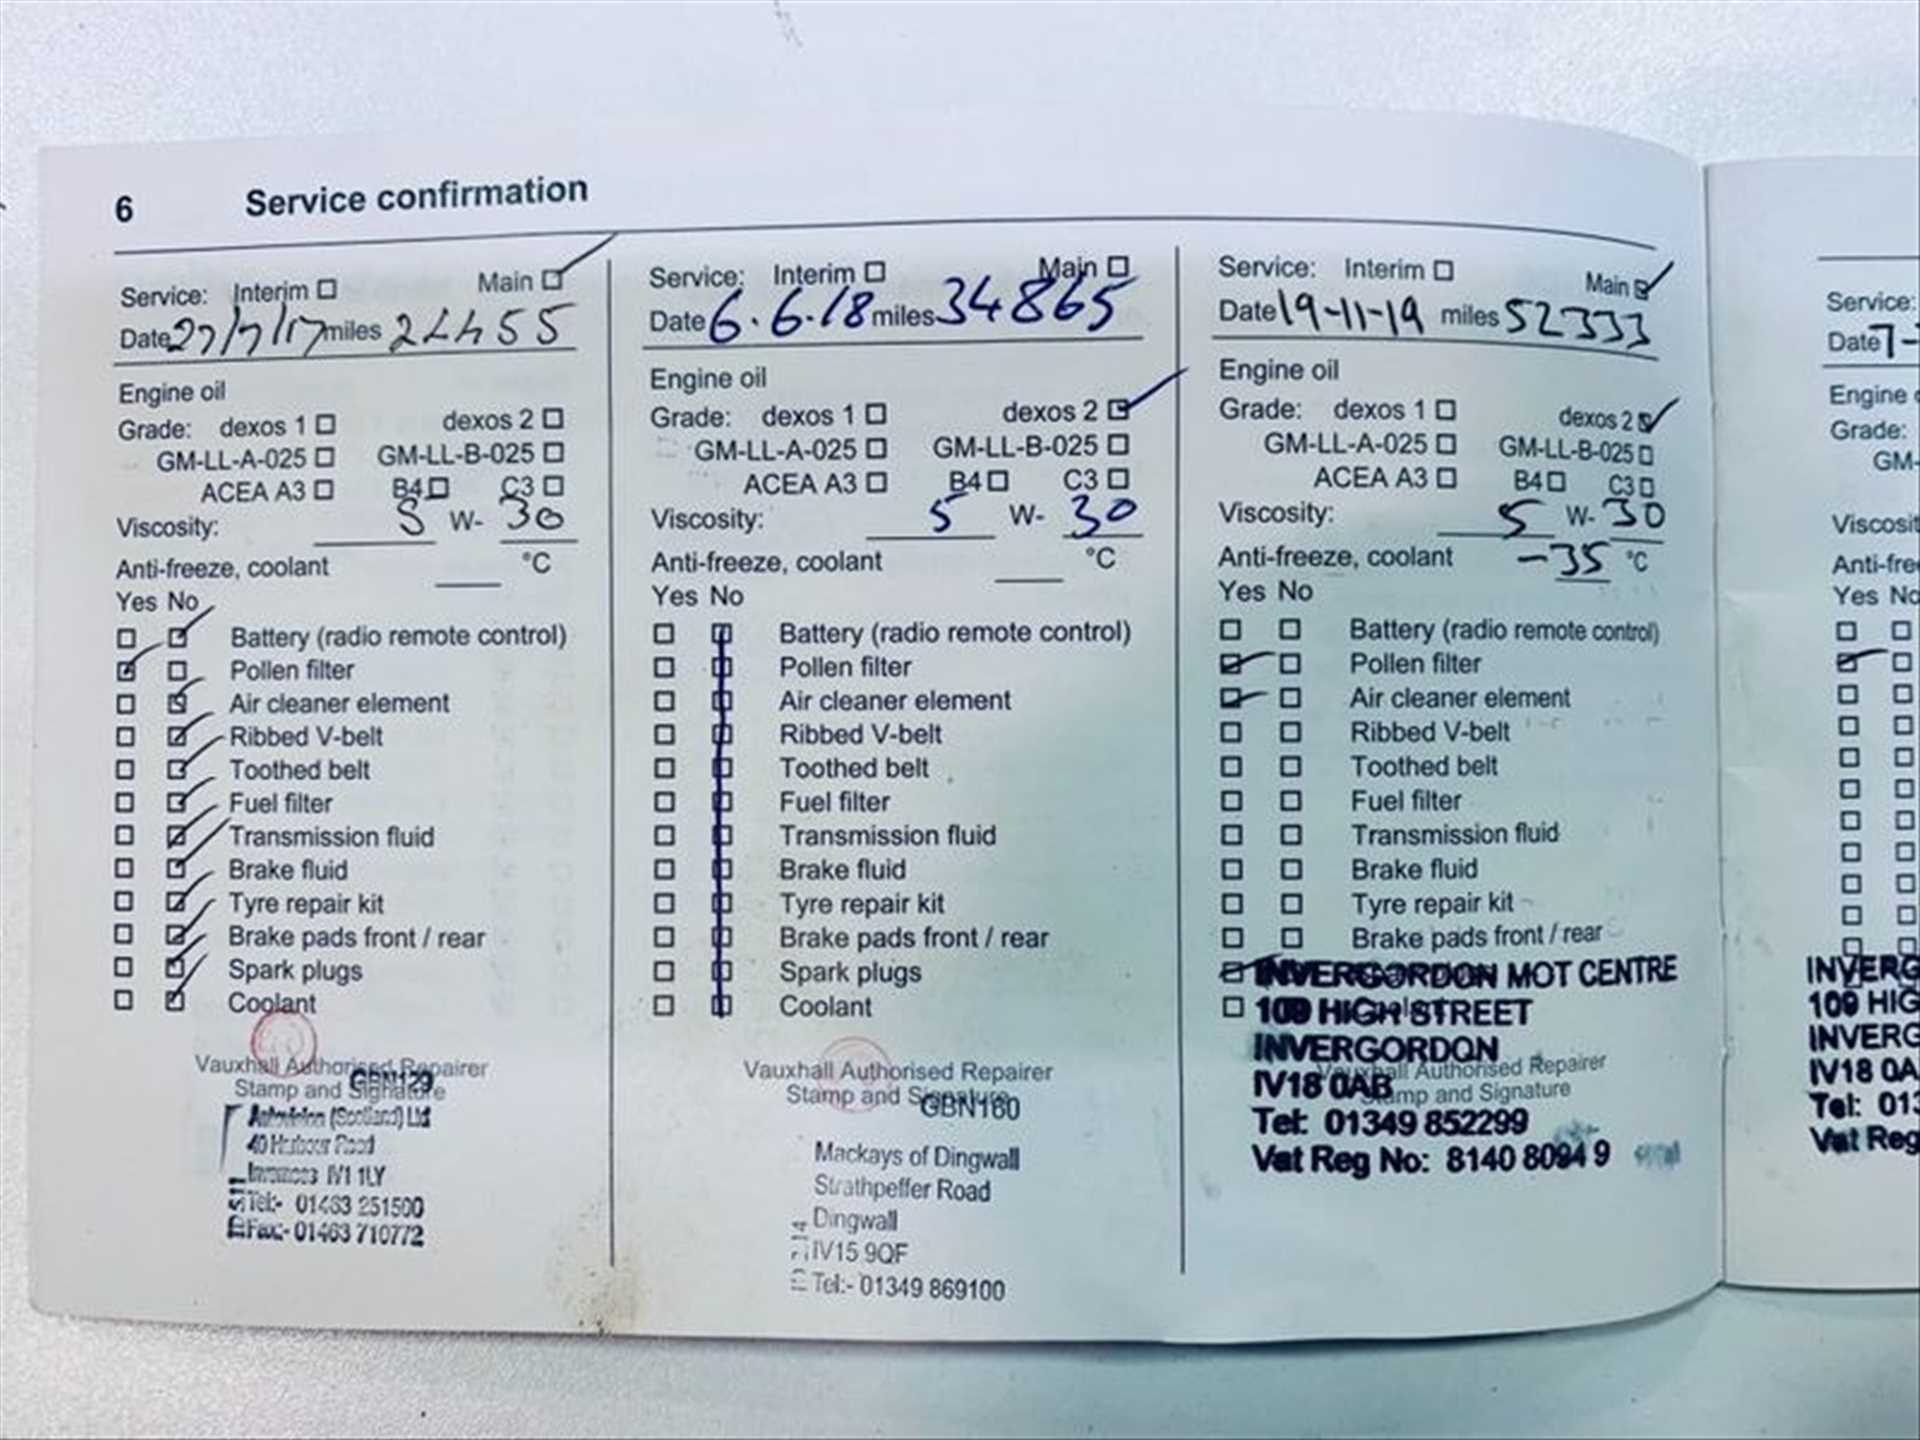 6 Service confirmation
Service: Interim Main
Date 27/7/17 miles
Engine oil
Grade: dexos 1 dexos 2
GM-LL-A-025 GM-LL-B-025
ACEA A3 B4 C3
Viscosity: 5 W- 30
Anti-freeze, coolant °C
Yes No
Battery (radio remote control)
Pollen filter
Air cleaner element
Ribbed V-belt
Toothed belt
Fuel filter
Transmission fluid
Brake fluid
Tyre repair kit
Brake pads front / rear
Spark plugs
Coolant
Vauxhall Authorised Repairer
Stamp and Signature
GBN129
(Scotland) Ltd
40 Harbour Road
Inverness IV1 1LY
Tel:- 01463 251500
Fax:- 01463 710772
Service: Interim Main
Date 6.6.18 miles 34865
Engine oil
Grade: dexos 1 dexos 2
GM-LL-A-025 GM-LL-B-025
ACEA A3 B4 C3
Viscosity: 5 W- 30
Anti-freeze, coolant °C
Yes No
Battery (radio remote control)
Pollen filter
Air cleaner element
Ribbed V-belt
Toothed belt
Fuel filter
Transmission fluid
Brake fluid
Tyre repair kit
Brake pads front / rear
Spark plugs
Coolant
Vauxhall Authorised Repairer
Stamp and Signature
GBN160
Mackays of Dingwall
Strathpeffer Road
Dingwall
IV15 9QF
Tel:- 01349 869100
Service: Interim Main
Date 19-11-19 miles 52333
Engine oil
Grade: dexos 1 dexos 2
GM-LL-A-025 GM-LL-B-025
ACEA A3 B4 C3
Viscosity: 5 W- 30
Anti-freeze, coolant -35 °C
Yes No
Battery (radio remote control)
Pollen filter
Air cleaner element
Ribbed V-belt
Toothed belt
Fuel filter
Transmission fluid
Brake fluid
Tyre repair kit
Brake pads front / rear
INVERGORDON MOT CENTRE
109 HIGH STREET
INVERGORDON
Vauxhall Authorised Repairer
IV18 0AB
Stamp and Signature
Tel: 01349 852299
Vat Reg No: 8140 8094 9
Service:
Date 7-
Engine o
Grade:
GM-
Viscosit
Anti-fre
Yes No
INVERG
109 HIG
INVERG
IV18 0A
Tel: 013
Vat Reg